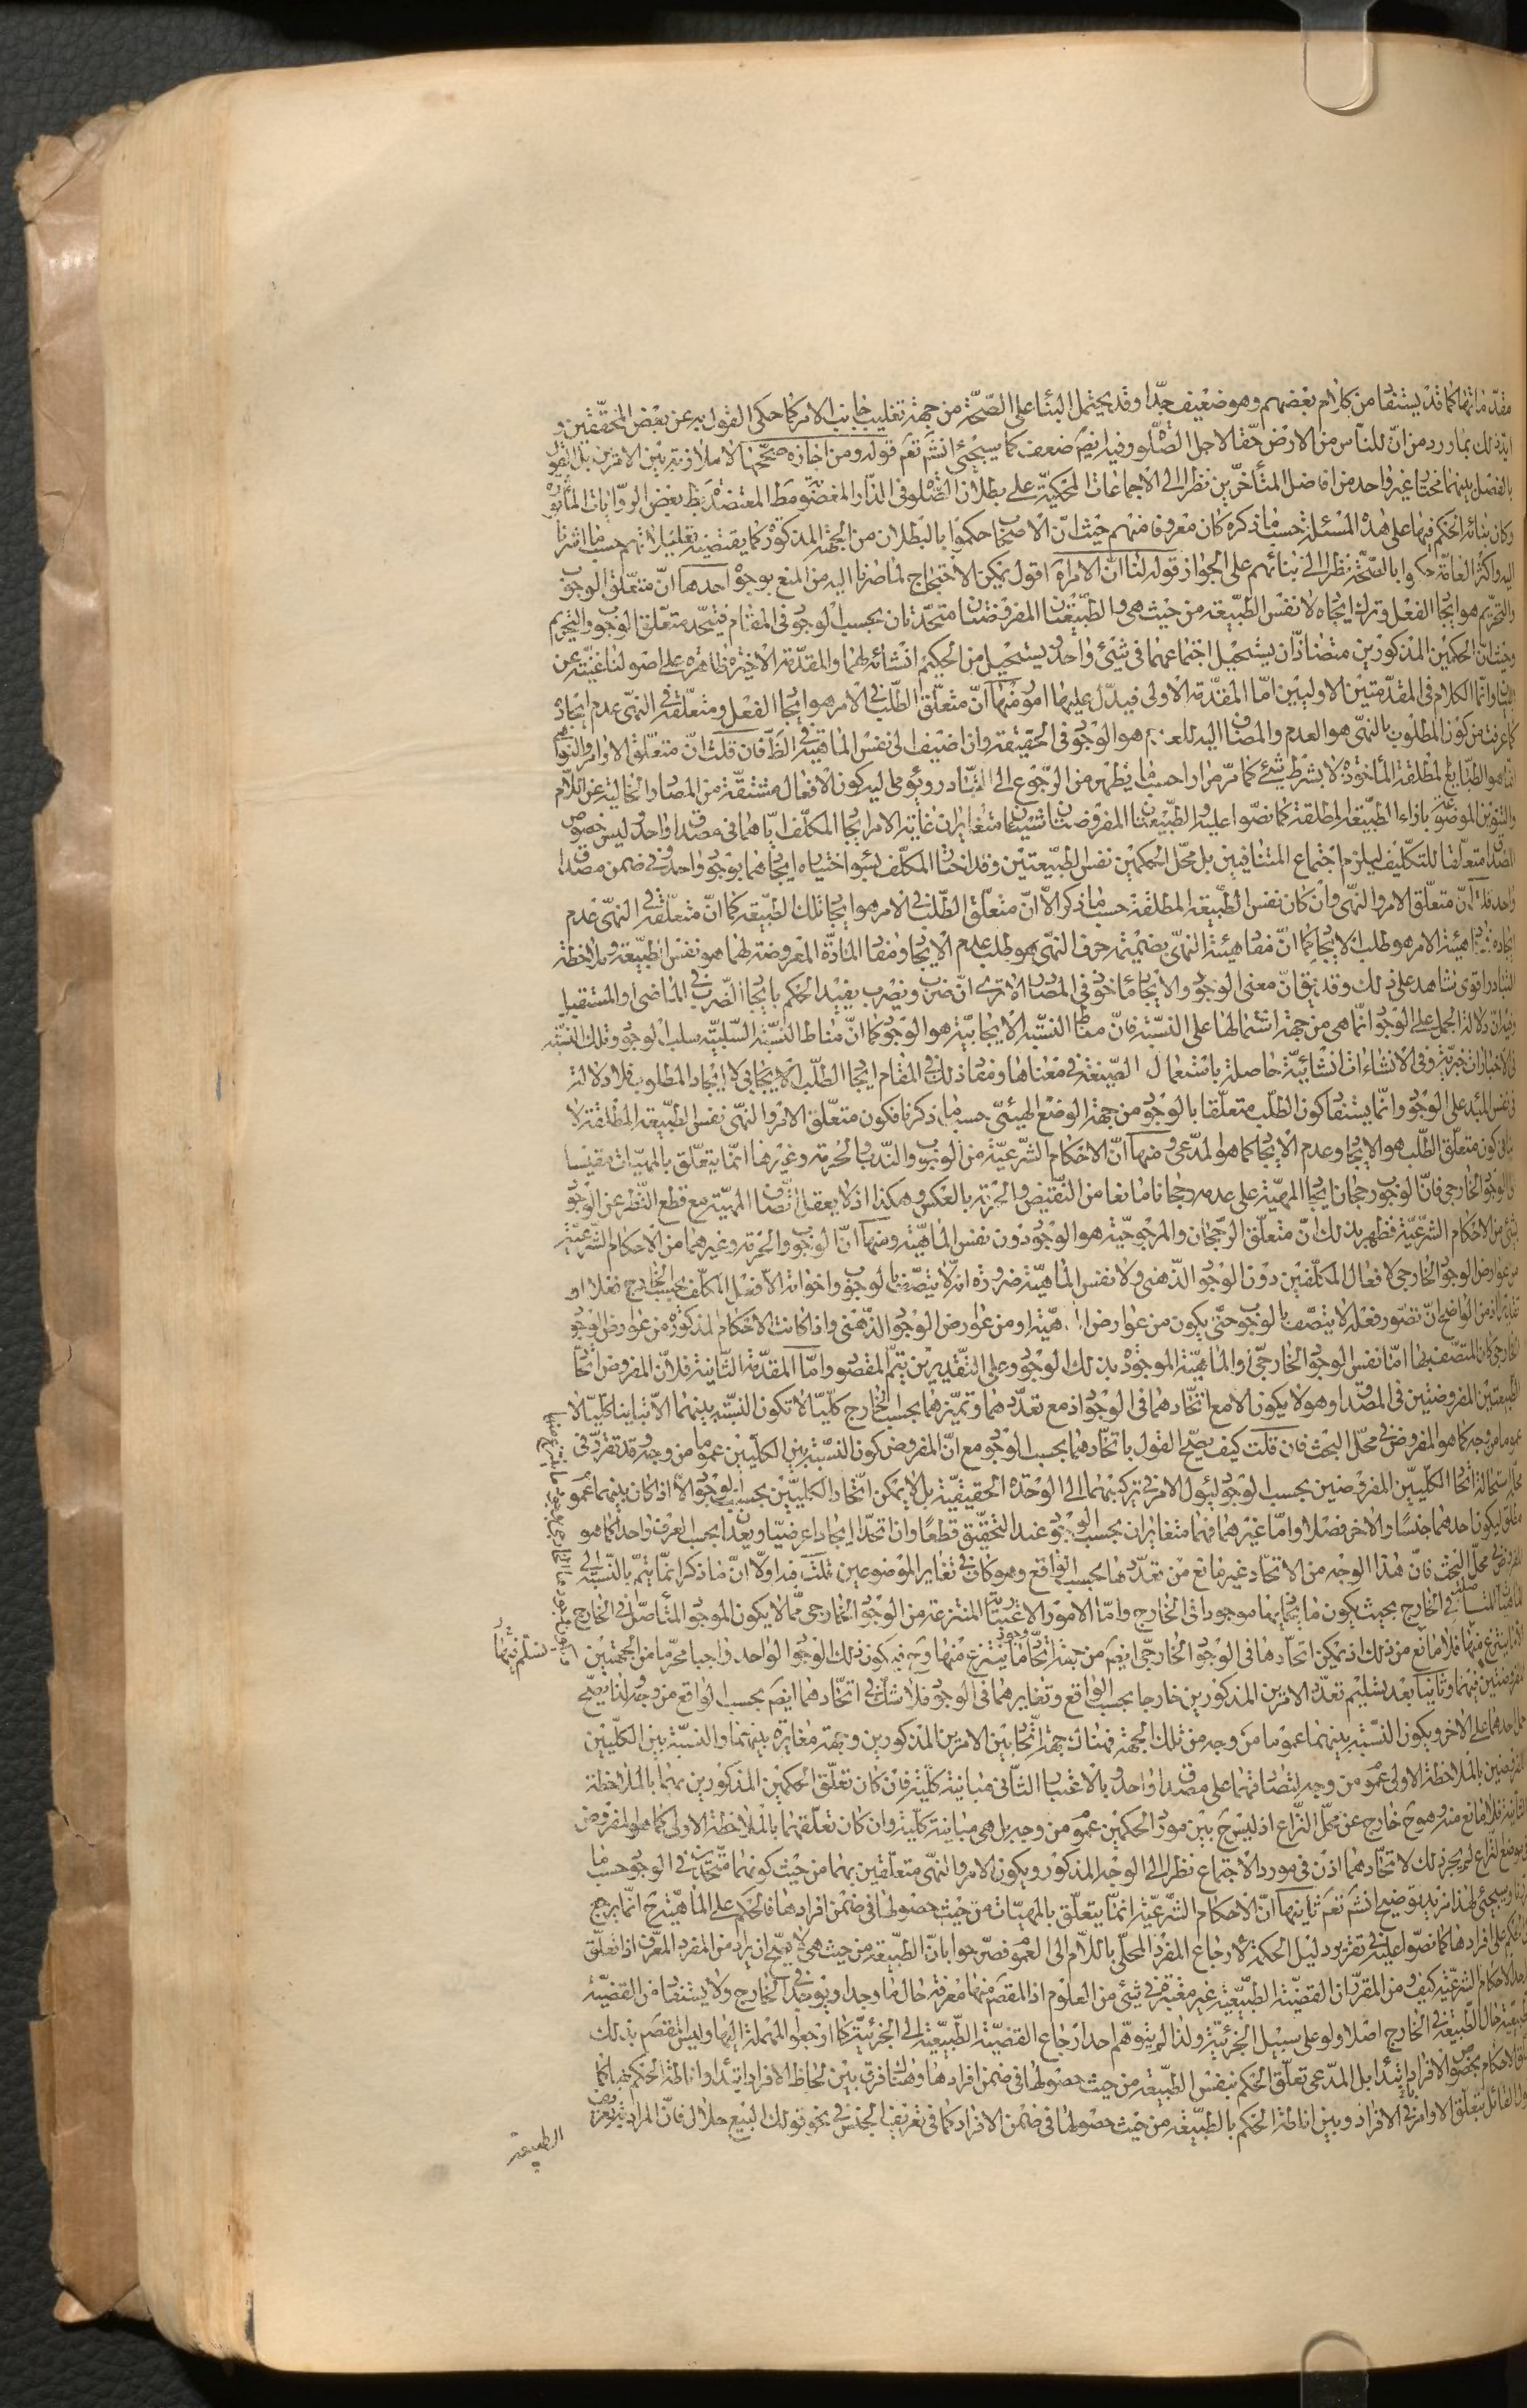 مقدماتها كما قد يستفاد من كلام بعضهم وهو ضعيف جدّا وقد يحتمل البناء على الصّحّة من جهة تغليب جانب الامر كما حكى القول به عن بعض المحقّقين و
ايّد ذلك بما ورد من انّ للنّاس من الارض حقّا لاجل الصّلوة وفيه ايضم ضعف كما سيجئ انشم تعم قوله ومن اجازه صحّحها لا ملازمة بين الامرين بل القول
بالفصل بينهما مختار غير واحد من افاضل المتأخّرين نظرا الى الاجماعات المحكيّة على بطلان الصّلوة فى الدّار المغصوبة مط المعتضدة بظ بعض الرّوايات المأثورة
وكان بنائه الحكم فيها على هذه المسئلة حسبما ذكره كان معروفا منهم حيث انّ الاصحاب حكموا بالبطلان من الجهة المذكورة كما يقتضيه تعليلاتهم حسب ما اشرنا
اليه واكثر العامّة حكموا بالصّحّة نظرا الى بنائهم على الجواز قوله لنا انّ الامر اه اقول يمكن الاحتجاج لما صرنا اليه من المنع بوجوه احدها انّ متعلّق الوجوب
والتحريم هو ايجاد الفعل وترك ايجاده لا نفس الطبيعة من حيث هى والطّبيعتان المفروضتان متحدتان بحسب الوجود فى المقام فيتّحد متعلّق الوجوب والتحريم
وحيث انّ الحكمين المذكورين متضادّان يستحيل اجتماعهما فى شئ واحد يستحيل من الحكيم انشائه لهما والمقدّمة الاخيرة ظاهرة على اصولنا غنيّة عن
البيان وانّما الكلام فى المقدّمتين الاوليين امّا المقدّمة الاولى فيدلّ عليها امور منها انّ متعلّق الطّلب فى الامر هو ايجاد الفعل ومتعلّقه فى النهى عدم ايجاده
كما عرفت من كون المطلوب بالنهى هو العدم والمضاف اليه للعدم هو الوجود فى الحقيقة وان اضيف الى نفس الماهيّة فى الظّ فان قلت انّ متعلّق الاوامر والنواهى
انّما هو الطبايع المطلقة المأخوذة لا بشرط شئ كما مرّ مرارا حسب ما يظهر من الرّجوع الى التّبادر ويؤمى اليه كون الافعال مشتقّة من المصادر الخالية عن اللّام
والتنوين الموضوعة بازاء الطّبيعة المطلقة كما نصّوا عليه والطّبيعتان المفروضتان شيئان متغايران غاية الامر ايجاد المكلّف ايّاهما فى مصداق واحد وليس خصوص
المصداق متعلّقا للتكليف ليلزم اجتماع المتنافيين بل محلّ الحكمين نفس الطبيعتين وقد اختار المكلّف بسوء اختياره ايجادهما بوجود واحد وفى ضمن مصداق
واحد قلت انّ متعلّق الامر والنهى وان كان نفس الطّبيعة المطلقة حسب ما ذكر الّا انّ متعلّق الطّلب فى الامر هو ايجاد تلك الطبيعة كما انّ متعلّقه فى النهى عدم
ايجاده هيئة الامر هو طلب الايجاد كما انّ مفاد هيئة النهى بضميمة حرف النهى هو طلب عدم الايجاد ومفاد المادّة المعروضة لهما هو نفس الطبيعة وملاحظة
التبادر اقوى شاهد على ذلك وقد يق انّ معنى الوجود والايجاد مأخوذ فى المصادر الا ترى انّ ضرب ويضرب يفيد الحكم بايجاد الضّرب فى الماضى او المستقبل
وفيه انّ دلالة الجمل على الوجود انّما هى من جهة اشتمالها على النسبة فانّ مفاد النسبة الايجابيّة هو الوجود كما انّ مناط النسبة السّلبيّة سلب الوجود وتلك النسبة
فى الاخبارات خبريّة وفى الانشاءات انشائيّة حاصلة باستعمال الصّيغة فى معناها ومفاد ذلك فى المقام ايجاد الطّلب الايجابى لا ايجاد المطلوب فلا دلالة
فى نفس المبدء على الوجود وانّما يستفاد كون الطّلب متعلّقا بالوجود من جهة الوضع الهيئى حسب ما ذكرنا فكون متعلّق الامر والنهى نفس الطّبيعة المطلقة لا
ينافى كون متعلّق الطّلب هو الايجاد وعدم الايجاد كما هو المدّعى ومنها انّ الاحكام الشّرعيّة من الوجوب والنّدب والحرمة وغيرها انّما يتعلّق بالمهيّات مقيسا
الى الوجود الخارجى فانّ الوجوب رجحان ايجاد المهيّة على عدمه رجحانا مانعا من النّقيض والحرمة بالعكس وهكذا اذ لا يعقل اتّصاف المهيّة مع قطع النّظر عن الوجود
بشئ من الاحكام الشّرعيّة فظهر بذلك انّ متعلّق الرّجحان والمرجوحيّة هو الوجود دون نفس الماهيّة ومنها انّ الوجوب والحرمة وغيرهما من الاحكام الشرعيّة
من عوارض الوجود الخارجى لافعال المكلّفين دون الوجود الذّهنى ولا نفس الماهيّة ضرورة انّه لا يتّصف بالوجوب واخواته الّا فعل المكلّف بحسب الخارج فعلا او
تقديرا ومن الواضح انّ تصوّر فعله لا يتّصف بالوجوب حتّى يكون من عوارض الماهيّة او من عوارض الوجود الذّهنى واذا كانت الاحكام المذكورة من عوارض الوجود
الخارجى كان المتّصف بها امّا نفس الوجود الخارجىّ او الماهيّة الموجودة بذلك الوجود وعلى التّقديرين يتمّ المقصود وامّا المقدّمة الثّانية فلانّ المفروض اتّحاد
الطبيعتين المفروضتين فى المصداق وهو لا يكون الّا مع اتّحادهما فى الوجود اذ مع تعدّدهما وتميّزهما بحسب الخارج كليّا لا تكون النسبة بينهما الّا تباينا كليّا لا
عموما من وجه كما هو المفروض فى محلّ البحث فان قلت كيف يصحّ القول باتّحادهما بحسب الوجود مع انّ المفروض كون النسبة بين الكليين عموما من وجه وقد تقرّر فى
محلّه استحالة اتّحاد الكليّين المفروضين بحسب الوجود ليؤل الامر فى تركيبهما الى الوحدة الحقيقيّة بل لا يمكن اتّحاد الكليّين بحسب الوجود الّا اذا كان بينهما عموم
مطلق ليكون احدهما جنسا والاخر فصلا وامّا غيرهما فهما متغايران بحسب الوجود عند التّحقيق قطعا وان اتّحدا ايجادا عرضيّا ويعدّان بحسب العرف واحدا كما هو
المفروض فى محلّ البحث فانّ هذا الوجه من الاتّحاد غير مانع من تعدّدهما بحسب الواقع وهو كاف فى تغاير الموضوعين قلت فيه اوّلا انّ ما ذكر انّما يتمّ بالنّسبة الى
الماهيّات المتأصّلة فى الخارج بحيث يكون ما بحذائها موجودا فى الخارج وامّا الامور الاعتباريّة المنتزعة من الوجود الخارجى ممّا لا يكون الموجود المتأصّل فى الخارج
الّا ما ينتزع منها فلا مانع من ذلك اذ يمكن اتّحادها فى الوجود الخارجى ايضم من جهة اتّحاد ما ينتزع منها وح فيكون ذلك الوجود الواحد واجبا محرّما من الجهتين
المفروضتين فيهما وثانيا بعد تسليم تعدّد الامرين المذكورين خارجا بحسب الواقع وتغايرهما فى الوجود فلا شكّ فى اتّحادهما ايضم بحسب الواقع من وجه لذا يصحّ
حمل احدهما على الاخر ويكون النّسبة بينهما عموما من وجه من تلك الجهة فهناك جهة اتّحاد بين الامرين المذكورين وجهة مغايرة بينهما والنّسبة بين الكليّين
المفروضين بالملاحظة الاولى عموم من وجه لتصادقهما على مصداق واحد وبالاعتبار الثّانى مباينة كليّة فان كان تعلّق الحكمين المذكورين بهما بالملاحظة
الثّانية فلا مانع منه وهو ح خارج عن محلّ النّزاع اذ ليس ح بين مورد الحكمين عموم من وجه بل هى مباينة كليّة وان كان تعلّقهما بالملاحظة الاولى كما هو المفروض
فى موضع النّزاع لم يجز ذلك لاتّحادهما اذن فى مورد الاجتماع نظرا الى الوجه المذكور ويكون الامر والنّهى متعلّقين بهما من حيث كونهما متّحدين فى الوجود حسب ما
مرّ وسيجئ لهذا مزيد توضيح انشم تعم ثانيها انّ الاحكام الشّرعيّة انّما يتعلّق بالمهيّات من حيث حصولها فى ضمن افرادها فالحكم على الماهيّة ح انّما يرجع
الى الحكم على افرادها كما نصّوا عليه فى تقرير دليل الحكمة لارجاع المفرد المحلّى باللّام الى العموم فصرّحوا بانّ الطّبيعة من حيث هى لا يصحّ ان يراد من المفرد المعرّف اذا تعلّق
احد الاحكام الشّرعيّة كيف ومن المقرّر انّ القضيّة الطّبيعيّة غير معتبرة فى شئ من العلوم اذ المقصم منها معرفة حال ما وجد او يوجد فى الخارج ولا يستفاد من القضيّة
الطبيعيّة حال الطّبيعة فى الخارج اصلا ولو على سبيل الجزئيّة ولذا لم يتوهّم احد ارجاع القضيّة الطّبيعيّة الى الجزئيّة كما ارجعوا المهملة اليها وليس المقصم بذلك
تعلّق الاحكام بخصوص الافراد ابتداء بل المدّعى تعلّق الحكم بنفس الطّبيعة من حيث حصولها فى ضمن افرادها وهناك فرق بين لحاظ الافراد ابتداء واناطة الحكم بها كما
هو القائل بتعلّق الاوامر بالافراد وبين اناطة الحكم بالطّبيعة من حيث حصولها فى ضمن الافراد كما فى تعريف الجنس فى نحو قولك البيع حلال فانّ المراد به تعريف
الطبيعة